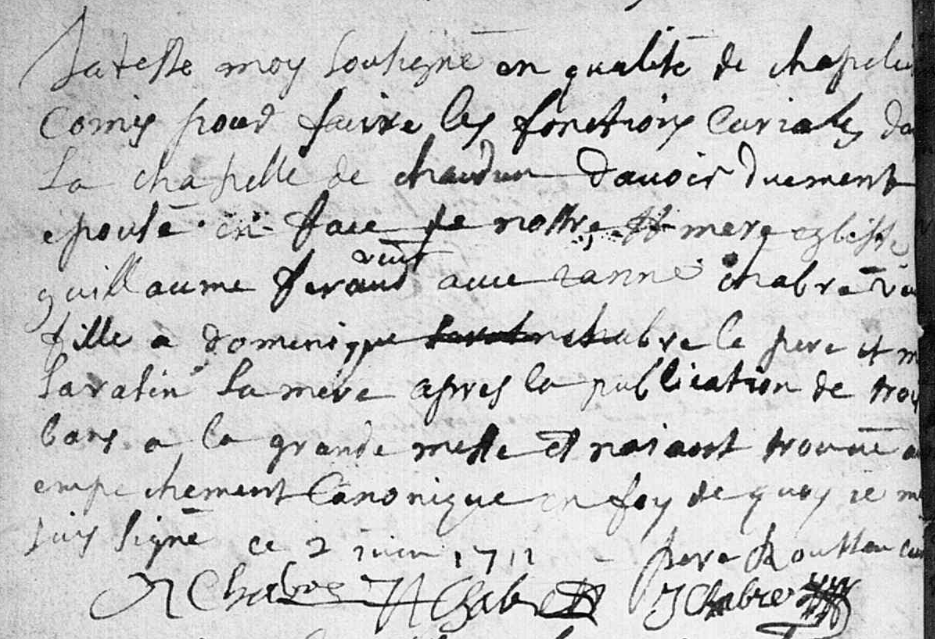 Jateste moy sousigné en qualité de chapelin
Comis pour faire les fonctions Curiales da
La chapelle de chaudun davoir duement
epousé en face de nostre st mere eglisse
veuf
guillaume feraud avec ianne chabre
fille a dominique chabre le pere et m
Savatin la mere apres la publication de troi
bans a la grande messe et naiant trouvé au
empechement Canonique en foy de quoy ie me
suis signé ce 2 iuin 1711 pere Rousseau cur
Chabre Chabre J Chabre